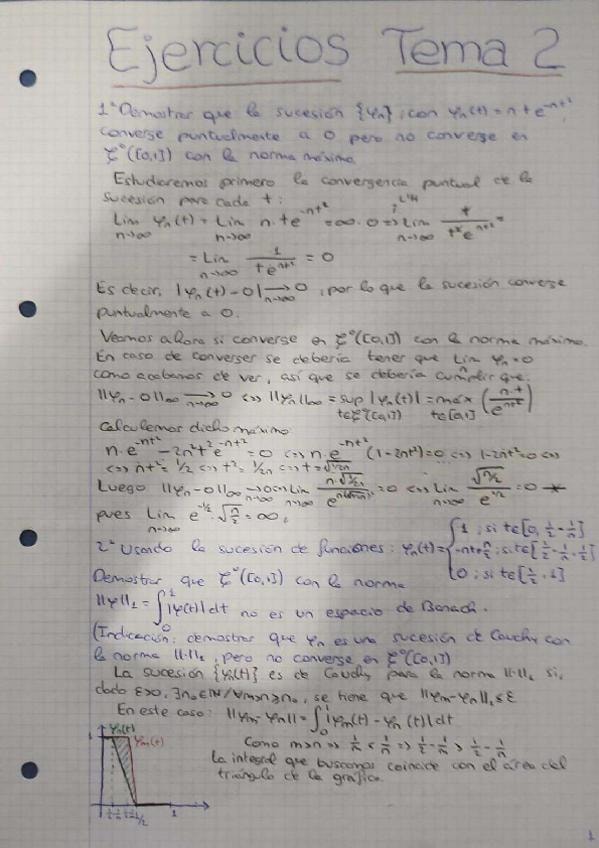 Ejercicios Tema 2
1º Demostrar que la sucesión {φₙ}, con φₙ(t) = n t e^(-nt²),
converge puntualmente a 0 pero no converge en
ℰ⁰([0,1]) con la norma máximo.
Estudiaremos primero la convergencia puntual de la
sucesión para cada t:
Lim_{n→∞} φₙ(t) = Lim_{n→∞} n·t e^(-nt²) = ∞·0 => Lim_{n→∞} t/(t² e^(nt²)) =
L'H
= Lim_{n→∞} 1/(t e^(nt²)) = 0
Es decir, |φₙ(t) - 0| →_{n→∞} 0, por lo que la sucesión converge
puntualmente a 0.
Veamos ahora si converge en ℰ⁰([0,1]) con la norma máximo.
En caso de converger se debería tener que Lim φₙ = 0
como acabamos de ver, así que se debería cumplir que:
||φₙ - 0||∞ →_{n→∞} 0 <=> ||φₙ||∞ = sup_{t∈ℰ⁰([0,1])} |φₙ(t)| = máx_{t∈[0,1]} (n·t/e^(nt²))
Calculemos dicho máximo:
n·e^(-nt²) - 2n²t² e^(-nt²) = 0 <=> n·e^(-nt²) (1-2nt²) = 0 <=> 1-2nt² = 0 <=>
<=> nt² = 1/2 <=> t² = 1/2n <=> t = √(1/2n)
Luego ||φₙ - 0||∞ →_{n→∞} 0 <=> Lim_{n→∞} n·√(1/2n) / = 0 <=> Lim_{n→∞} √(n/2)/e^(1/2) = 0 *
pues Lim_{n→∞} e^(-1/2)·√(n/2) = ∞.
2º Usando la sucesión de funciones: φₙ(t) = { 1 ; si t∈[0, 1/2 - 1/n]
-nt+n/2 ; si t∈[1/2 - 1/n, 1/2]
0 ; si t∈[1/2, 1]
Demostrar que ℰ⁰([0,1]) con la norma
||φ||₁ = ∫₀¹ |φ(t)| dt no es un espacio de Banach.
(Indicación: demostrar que φₙ es una sucesión de Cauchy con
la norma ||·||₁, pero no converge en ℰ⁰([0,1])
La sucesión {φₙ(t)} es de Cauchy para la norma ||·||₁ si,
dado ε>0, ∃n₀∈ℕ / ∀m>n≥n₀, se tiene que ||φₘ-φₙ||₁ ≤ ε
En este caso: ||φₘ - φₙ|| = ∫₀¹ |φₘ(t) - φₙ(t)| dt
Como m>n => 1/m < 1/n => 1/2 - 1/m > 1/2 - 1/n
La integral que buscamos coincide con el área del
triángulo de la gráfica.
φₙ(t)
1
φₘ(t)
1/2-1/n 1/2-1/m 1/2 1
1